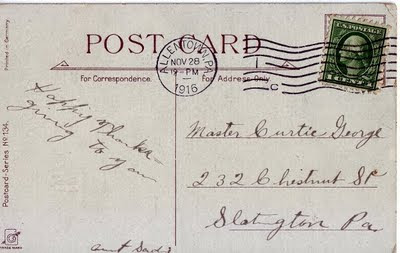 Printed in Germany
POST CARD
For Correspondence.
For Address Only.
ALLENTOWN, PA.
NOV 28
9-PM
1916
U.S. POSTAGE
Happy Thanks-
giving to you
Aunt Sadie
Master Curtic George
232 Chestnut St
Slatington Pa
Postcard-Series No 134.
TRADE MARK